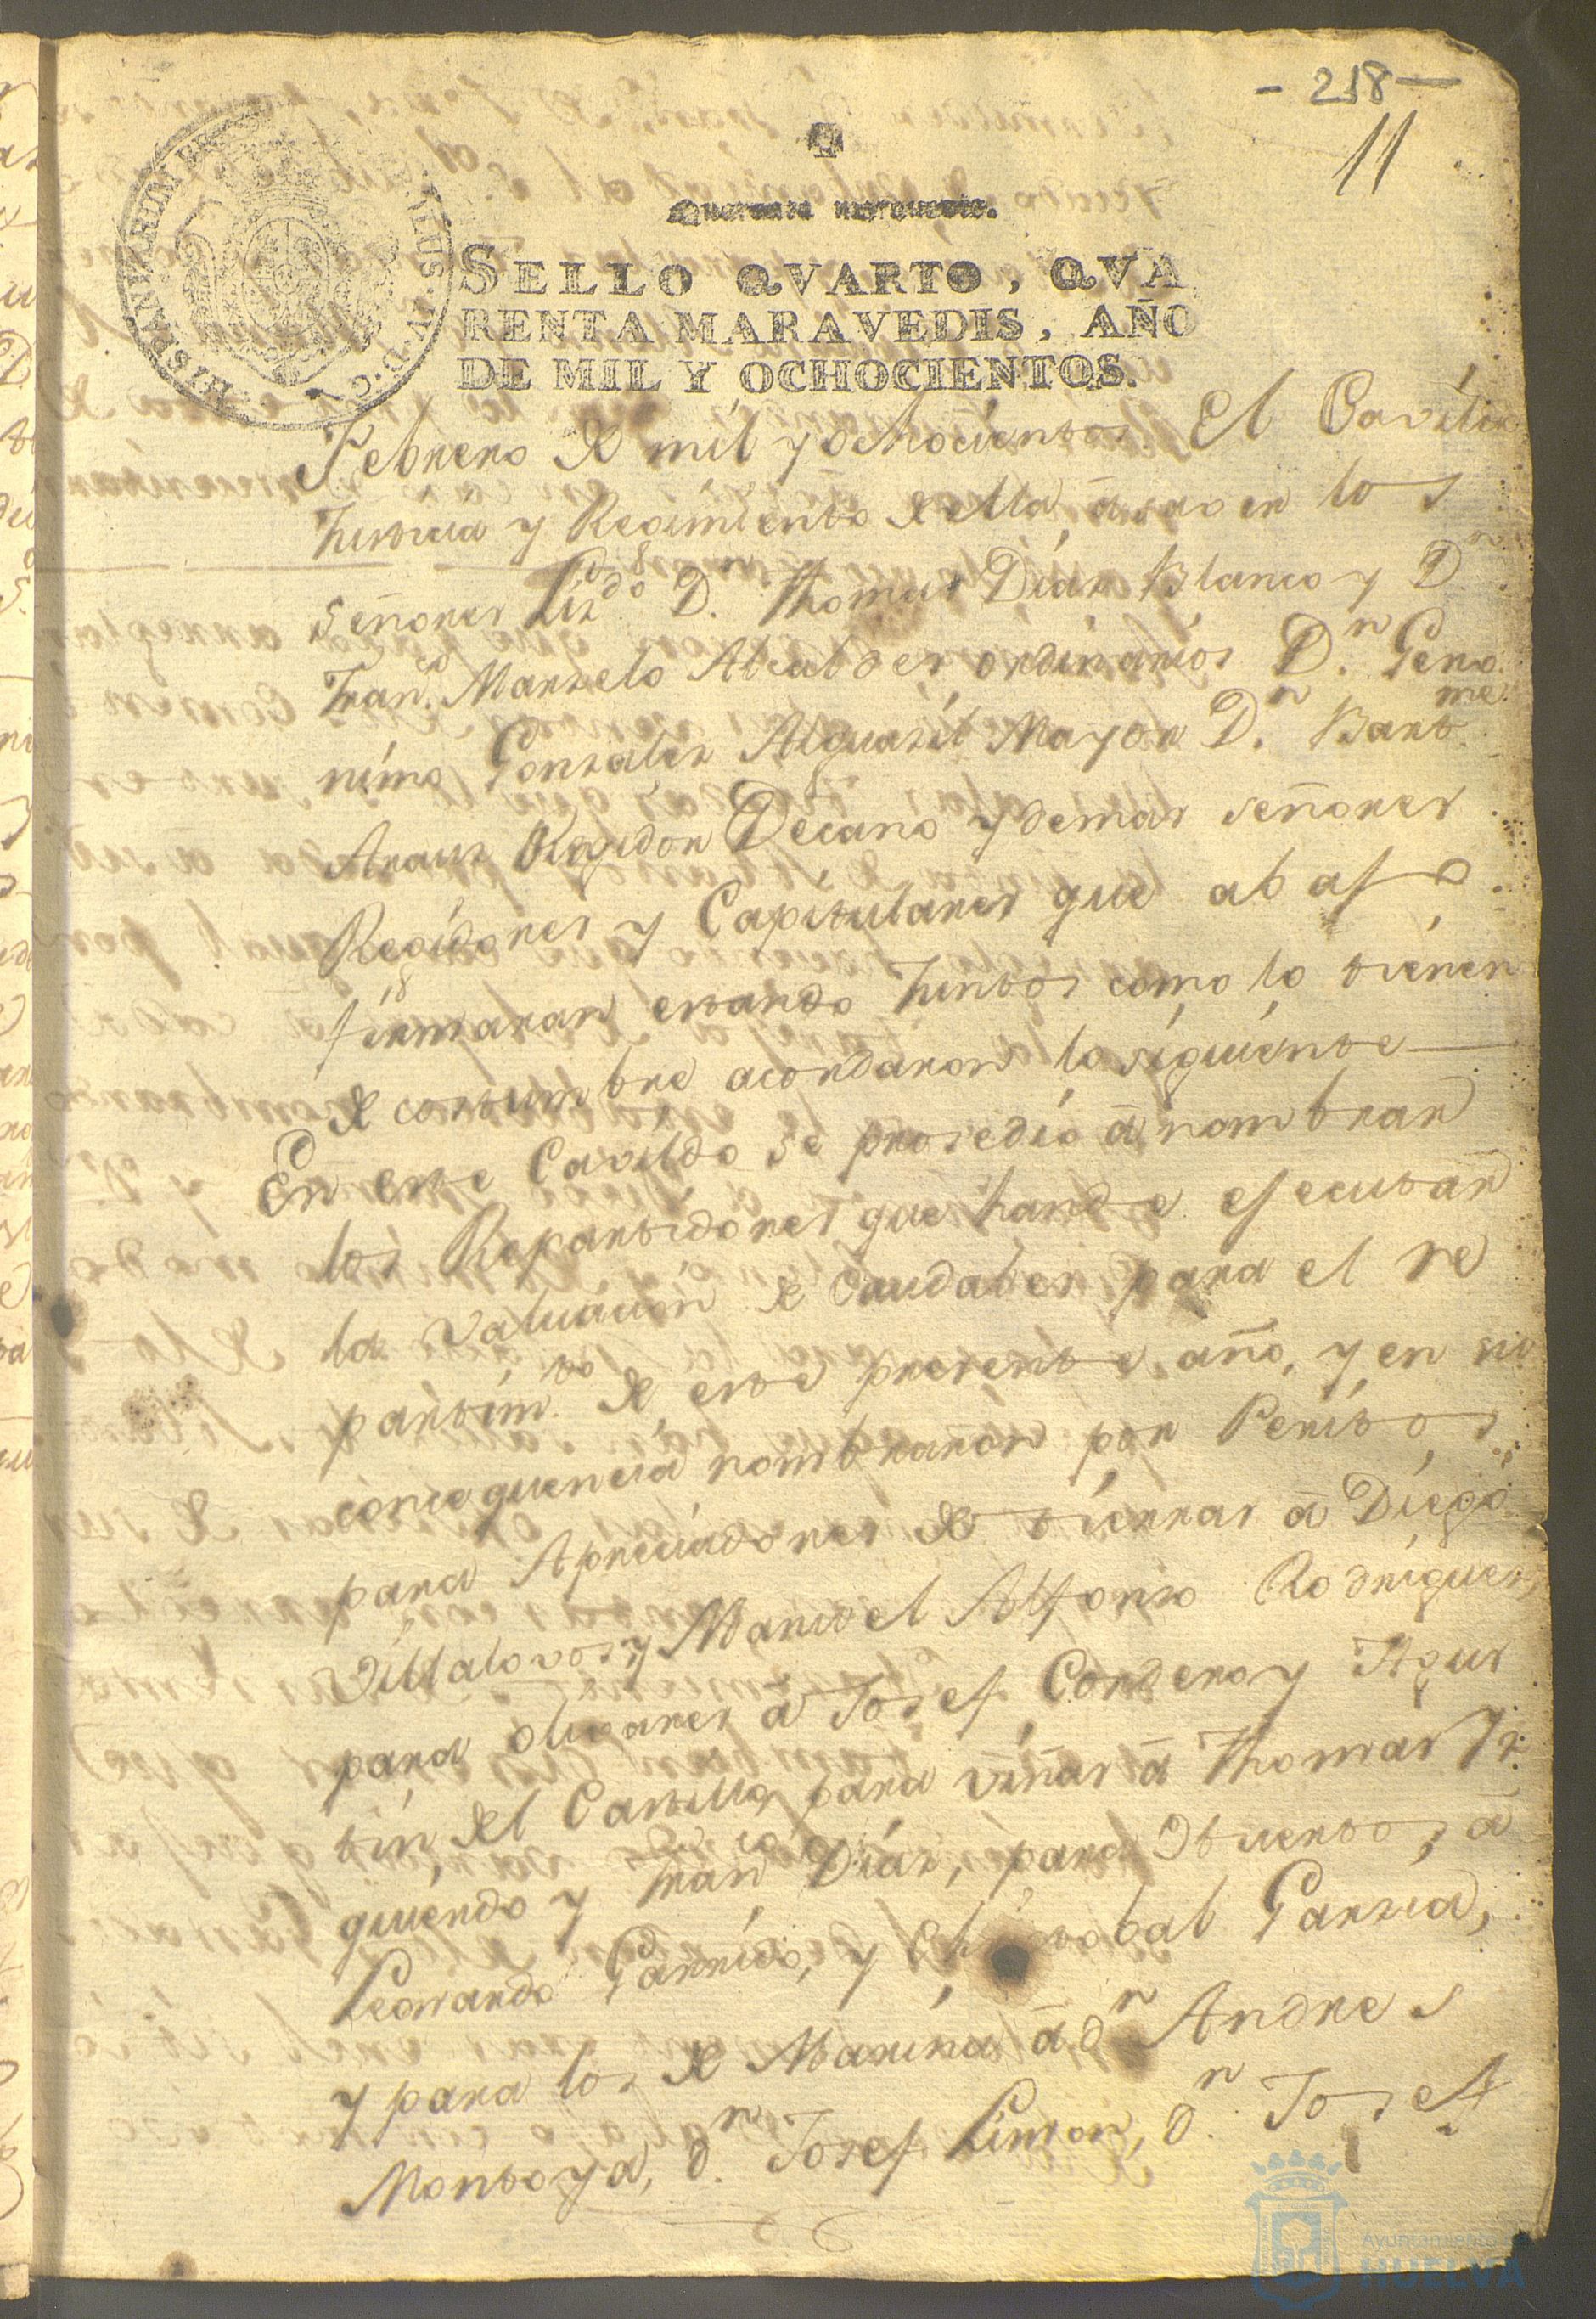 - 218 -
11
Quarenta maravedis.
SELLO QVARTO, QVA
RENTA MARAVEDIS, AÑO
DE MIL Y OCHOCIENTOS.
HISPANIARUM
Febrero de mil y ochocientos. El Cavildo
Justicia y Regimiento de ella, a saver los
Señores Liz.do D.n Thomas Diaz Blanco y D.n
Fran.co Marzelo Alcaldes ordinarios D.n Gero
nimo Gonzalez Alguazil Mayor D.n Bart.me
Arauz Regidor Decano y demas señores
Regidores y Capitulares que abajo
firmaran estando Juntos como lo tienen
de costumbre acordaron lo siguiente
En este Cavildo se prosedio â nombrar
los Repartidores que hande ejecutar
la valuacion de Caudales para el re
partim.to de este presente año, y en su
consequencia nombraron por Peritos
para Apreciadores de tierras â Diego
Villalovos, y Manuel Alfonso Rodriguez,
para olivares â Josef Cordero y Agus
tin del Castillo, para viñas â Thomas Yz
quierdo y Fran.co Diaz, para Huertos, â
Leonardo Garrido, y Christobal Garzia,
y para los de Marina â d.n Andres
Montoya, d.n Josef Limon, d.n Josef
Ayuntamiento
HUELVA